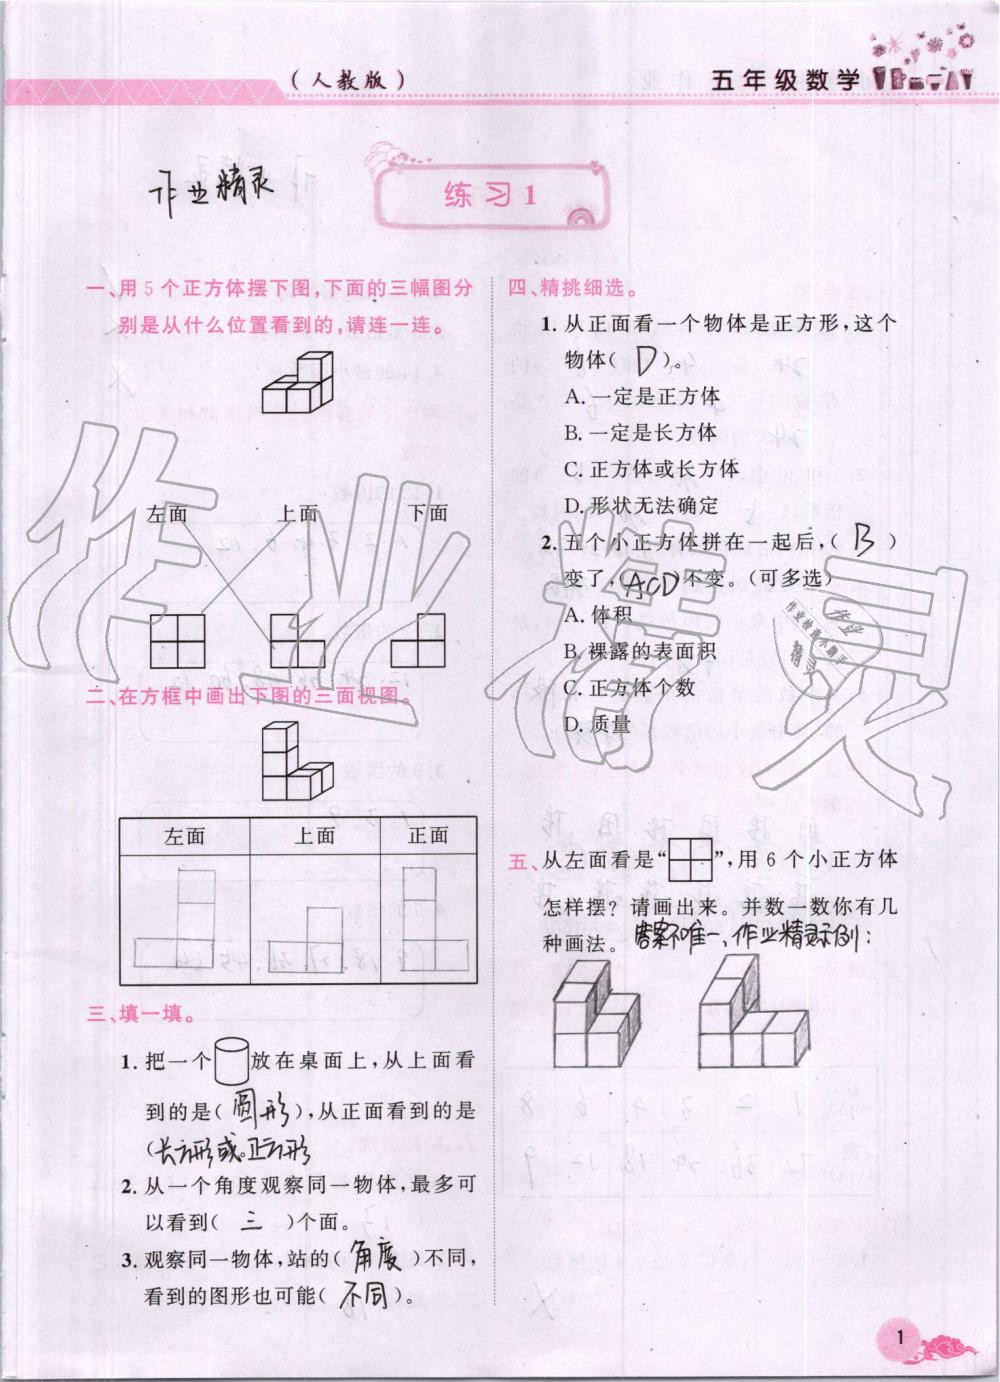 （人教版）
五年级数学
作业精灵
练习1
一、用5个正方体摆下图，下面的三幅图分
别是从什么位置看到的，请连一连。
左面 上面 下面
二、在方框中画出下图的三面视图。
左面 上面 正面
三、填一填。
1. 把一个 放在桌面上，从上面看
到的是（圆形），从正面看到的是
（长方形或正方形
2. 从一个角度观察同一物体，最多可
以看到（ 三 ）个面。
3. 观察同一物体，站的（ 角度 ）不同，
看到的图形也可能（不同）。
四、精挑细选。
1. 从正面看一个物体是正方形，这个
物体（ D ）。
A. 一定是正方体
B. 一定是长方体
C. 正方体或长方体
D. 形状无法确定
2. 五个小正方体拼在一起后，（ B ）
变了，（ACD）不变。（可多选）
A. 体积
B. 裸露的表面积
C. 正方体个数
D. 质量
五、从左面看是“ ”，用6个小正方体
怎样摆？请画出来。并数一数你有几
种画法。 答案不唯一、作业精灵示例：
作业精灵
1